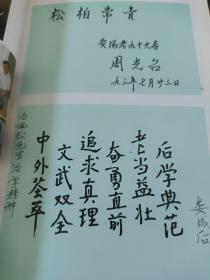 松柏常青
周光召
九三年七月廿三日
后学典范
老当益壮
奋勇直前
追求真理
文武双全
中外荟萃
娄成后